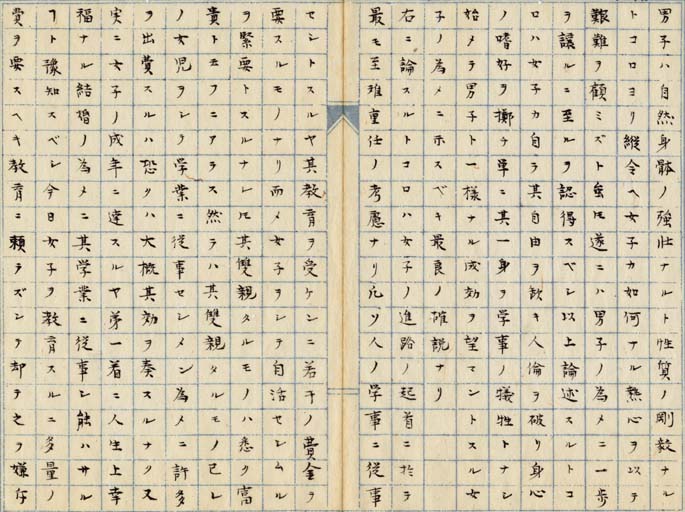 男子ハ自然身體ノ強壮ナルト性質ノ剛毅ナル
トコロヨリ縦令ヘ女子カ如何ナル熱心ヲ以テ
艱難ヲ顧ミズト雖モ遂ニハ男子ノ為メニ一歩
ヲ讓ルニ至ルヲ認得スベシ以上論述スルトコ
ロハ女子カ自ラ其自由ヲ欽キ人倫ヲ破リ身心
ノ嗜好ヲ擲テ単ニ其一身ヲ学事ノ犠牲トナシ
始メテ男子ト一様ナル成効ヲ望マントスル女
子ノ為メニホスベキ最良ノ確説ナリ
右ニ論スルトコロハ女子ノ進路ノ起首ニ於テ
最モ至難重任ノ考慮ナリ凡ソ人ノ学事ニ従事
セントスルヤ其教育ヲ受ケンニ若干ノ費金ヲ
要スルモノナリ而メ女子ヲシテ自活セシムル
ヲ緊要トスルナレ𪜈其雙親タルモノハ悉ク富
貴トモフニアラス然ラハ其雙親タルモノ己レ
ノ女児ヲシテ学業ニ従事セシメン為メニ許多
ヲ出費スルハ恐クハ大概其効ヲ奏スルナク又
実ニ女子ノ成年ニ達スルヤ第一着ニ人生上幸
福ナル結婚ノ為メニ其学業ニ従事シ能ハサル
フト豫知スベシ今日女子ヲ教育スルニ多量ノ
費ヲ要スヘキ教育ニ頼ラズシテ却テ之ヲ嫌存